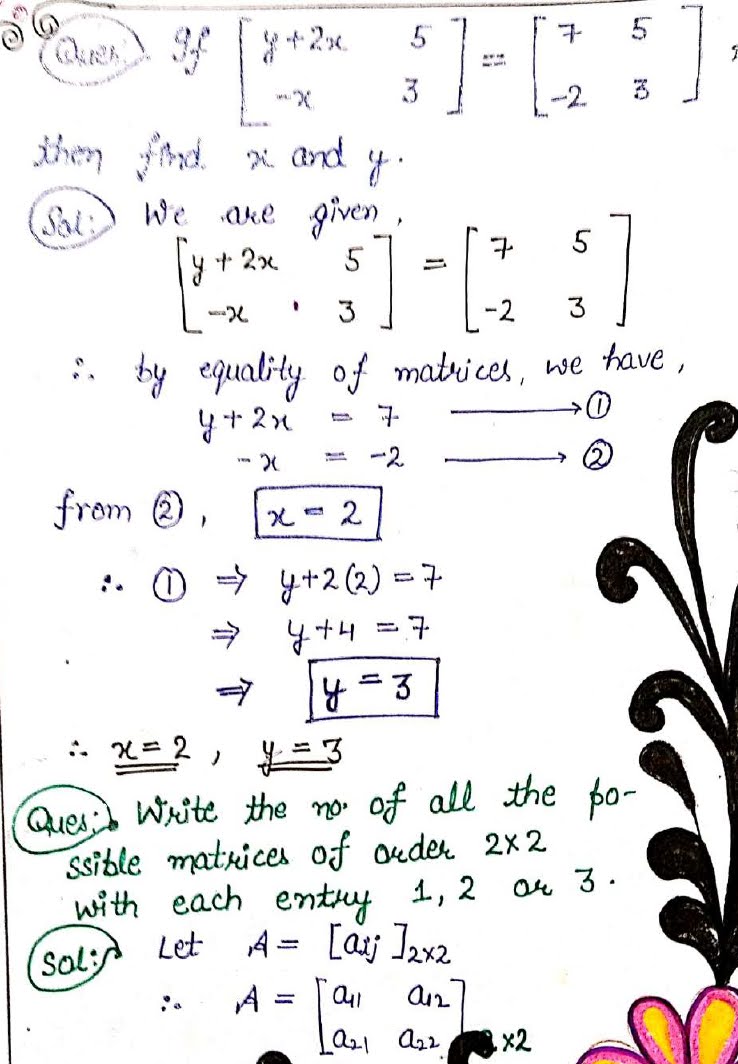 Ques: If [ y + 2x 5 ] = [ 7 5 ],
[ -x 3 ] [ -2 3 ]
then find x and y.
Sol: We are given,
[ y + 2x 5 ] = [ 7 5 ]
[ -x 3 ] [ -2 3 ]
∴ by equality of matrices, we have,
y + 2x = 7 ⟶ ①
-x = -2 ⟶ ②
from ②, x = 2
∴ ① ⇒ y+2(2) = 7
⇒ y+4 = 7
⇒ y = 3
∴ x = 2, y = 3
Ques: Write the no. of all the po-
ssible matrices of order 2×2
with each entry 1, 2 or 3.
Sol: Let A = [aij]2×2
∴ A = [ a11 a12 ]
[ a21 a22 ] 2×2